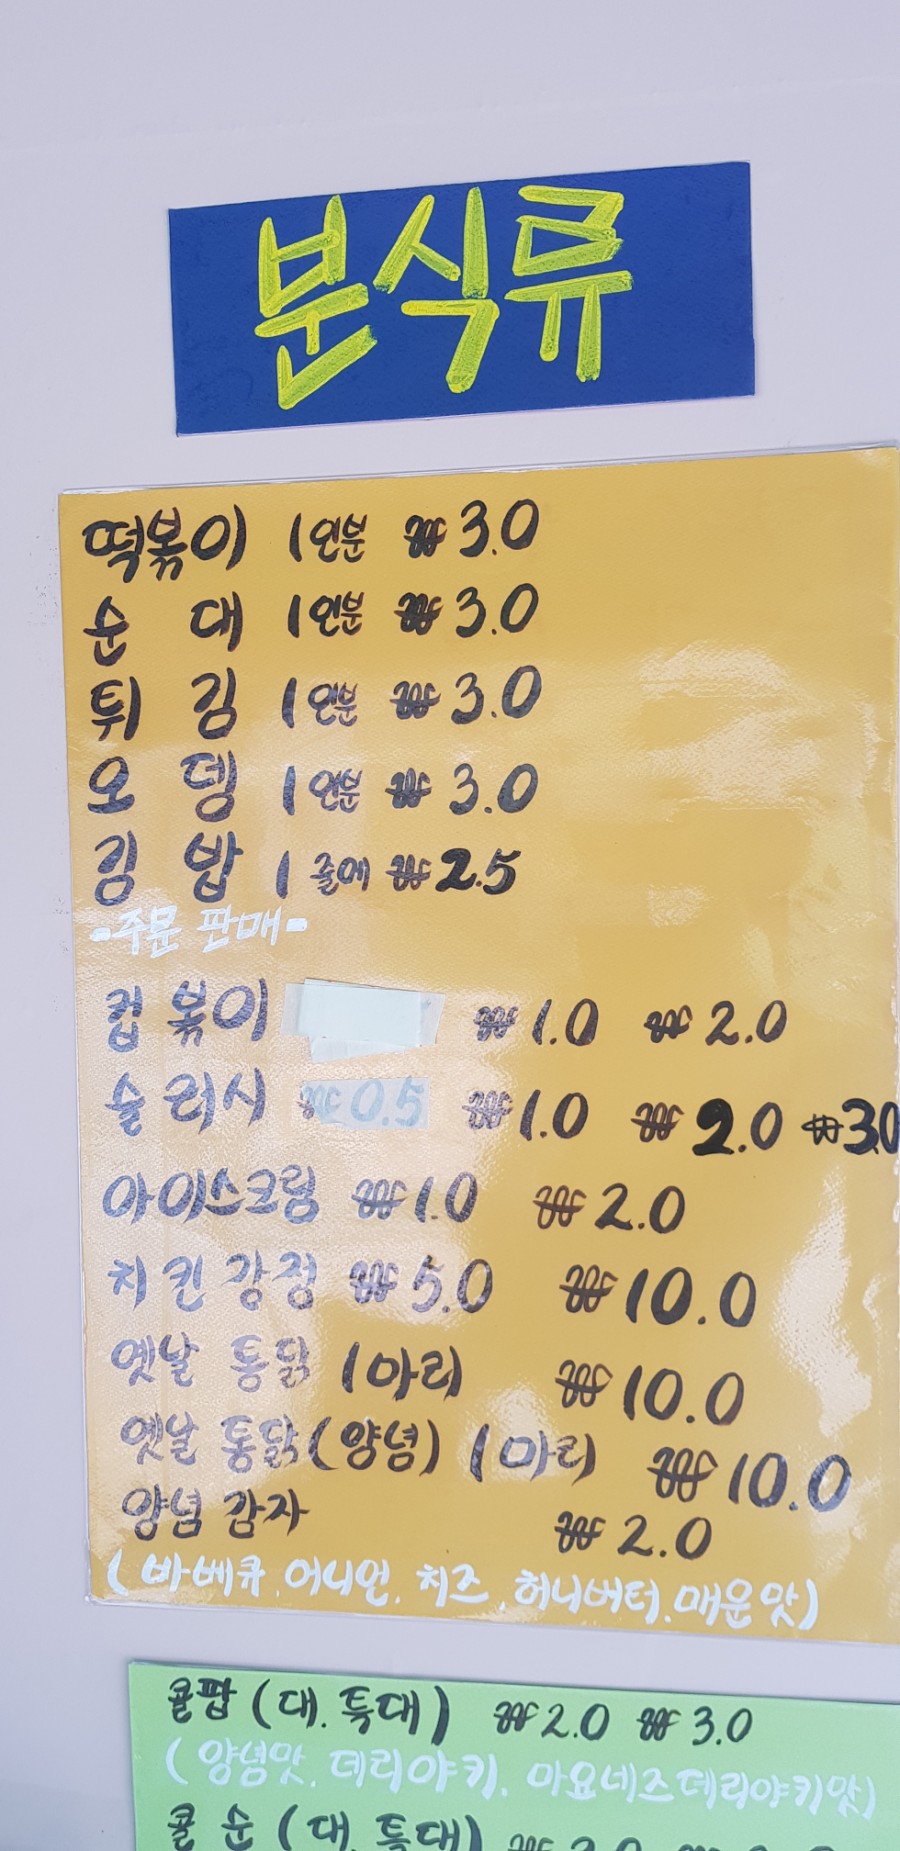 분식류
떡볶이 1인분 ₩3.0
순 대 1인분 ₩3.0
튀 김 1인분 ₩3.0
오 뎅 1인분 ₩3.0
김 밥 1줄에 ₩2.5
-주문 판매-
컵 볶이 ₩1.0 ₩2.0
슬러시 ₩0.5 ₩1.0 ₩2.0 ₩3.0
아이스크림 ₩1.0 ₩2.0
치킨강정 ₩5.0 ₩10.0
옛날 통닭 1마리 ₩10.0
옛날 통닭(양념) 1마리 ₩10.0
양념 감자 ₩2.0
(바베큐.어니언.치즈.허니버터.매운맛)
콜팝 (대.특대) ₩2.0 ₩3.0
(양념맛.데리야키.마요네즈데리야키맛)
콜순 (대.특대)